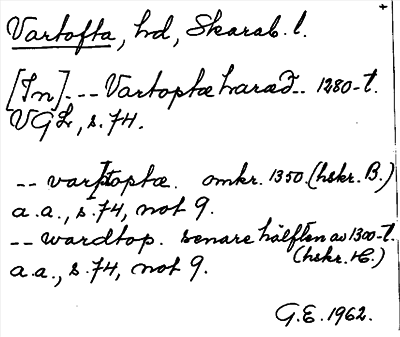 Vartofta, hd, Skarab. l.
[In]. -- Vartoptæ haræd -- 1280-t.
VGL, s. 74.
-- vartoptæ. omkr. 1350. (hskr. B.)
a.a., s. 74, not 9.
-- wardtop. senare hälften av 1300-t.
(hskr. H.)
a.a., s. 74, not 9.
G.E. 1962.